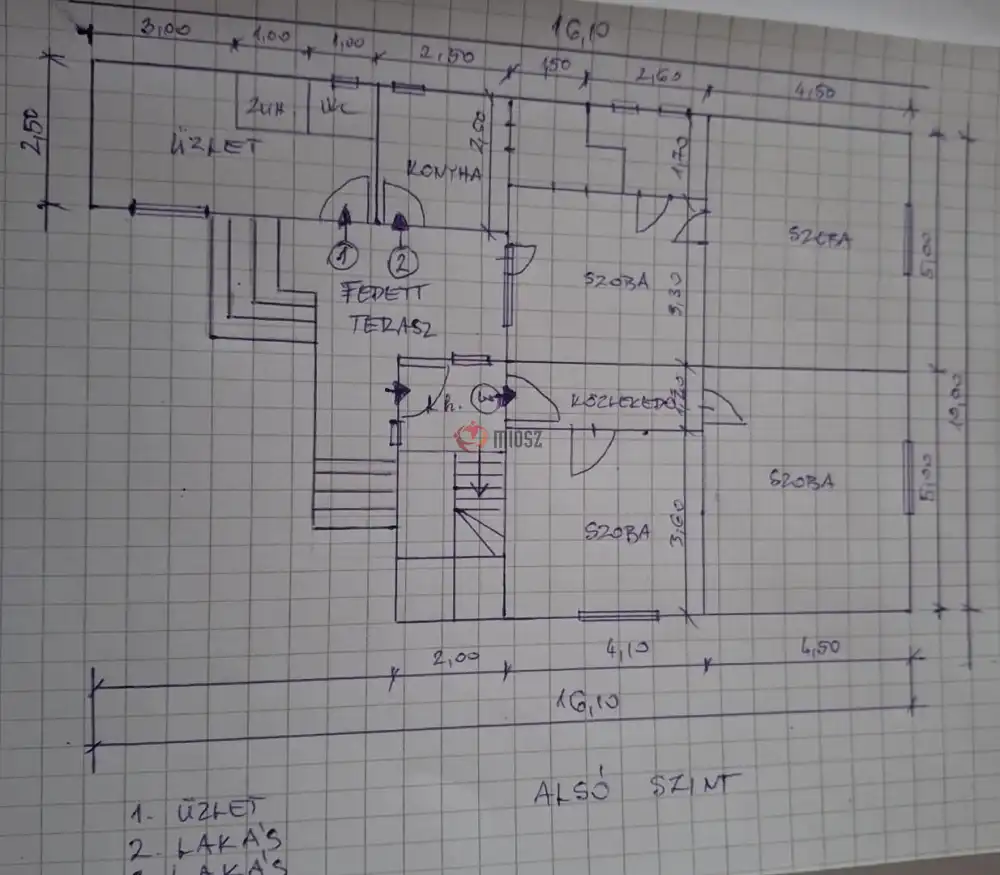 16,10
3,00 1,00 1,00 2,50 1,50 2,60 4,50
2,50
ZUH. WC
ÜZLET
KONYHA
2,60
1,70
SZOBA
5,00
1 2
SZOBA
3,30
FEDETT
TERASZ
Kh. 3 KÖZLEKEDŐ 1,20
10,00
MIOSZ
SZOBA
5,00
SZOBA
3,60
2,00 4,10 4,50
16,10
ALSÓ SZINT
1. ÜZLET
2. LAKÁS
LAKÁS